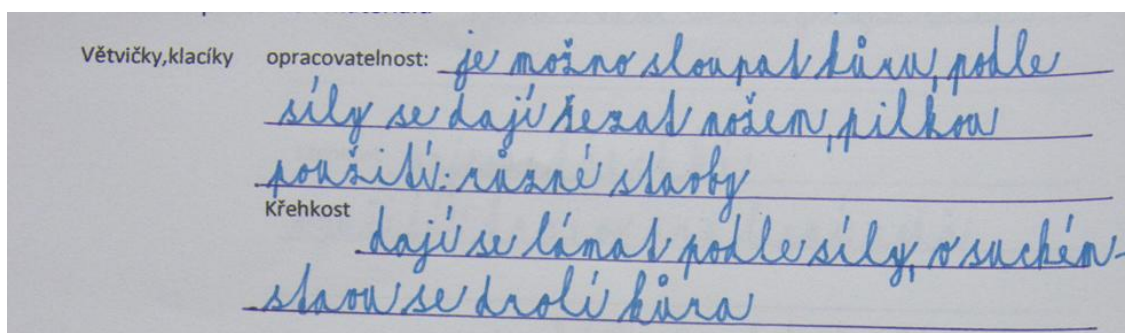 Větvičky,klacíky opracovatelnost: je možno sloupat kůru, podle
síly se dají řezat nožem, pilkou
použití: různé stavby
Křehkost
dají se lámat podle síly, v suchém
stavu se drolí kůra